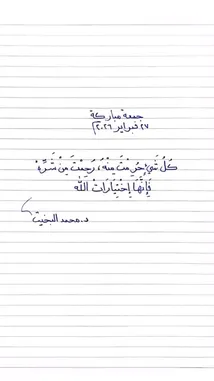 جمعة مباركة
٢٧ فبراير ٢٠٢٦
كُلُّ شَيْءٍ حُرِمْتَ مِنْهُ، رُحِمْتَ مِنْ شَرِّهْ
فَإِنَّهَا إِخْتِيَارَاتُ اللّٰه
د. محمد البخيت